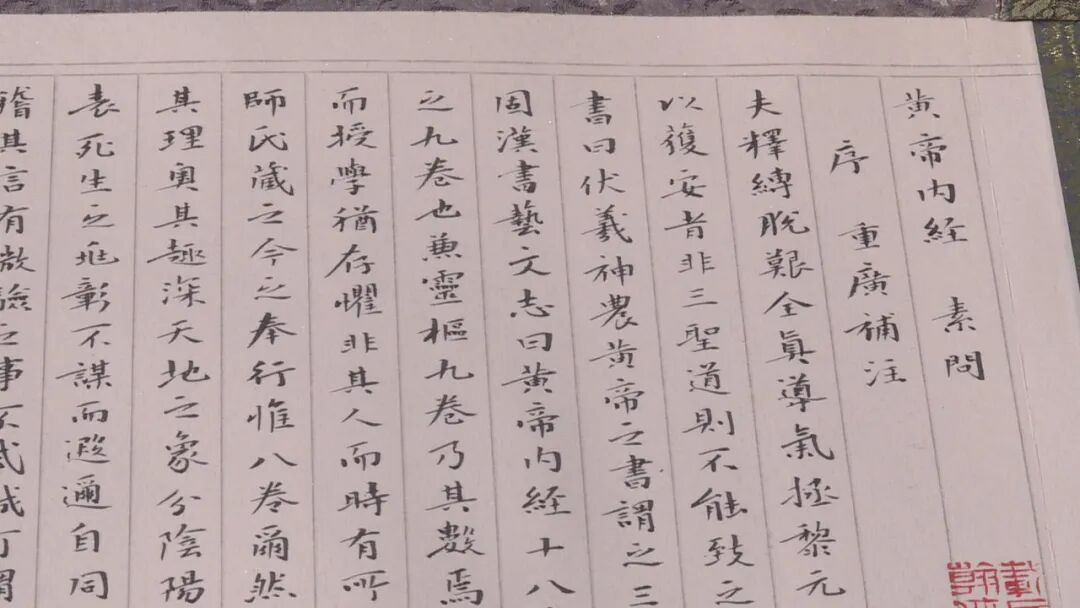 黄帝内経 素問
序 重廣補注
夫釋縛脱艱全眞導氣拯黎元
以獲安者非三聖道則不能致之
書曰伏羲神農黄帝之書謂之三
固漢書藝文志曰黄帝内経十八
之九卷也兼靈樞九卷乃其數焉
而授學猶存懼非其人而時有所
師氏蔵之今之奉行惟八卷爾然
其理奥其趣深天地之象分陰陽
表死生之兆彰不謀而遐邇自同
稽其言有徴驗之事不忒誠可謂